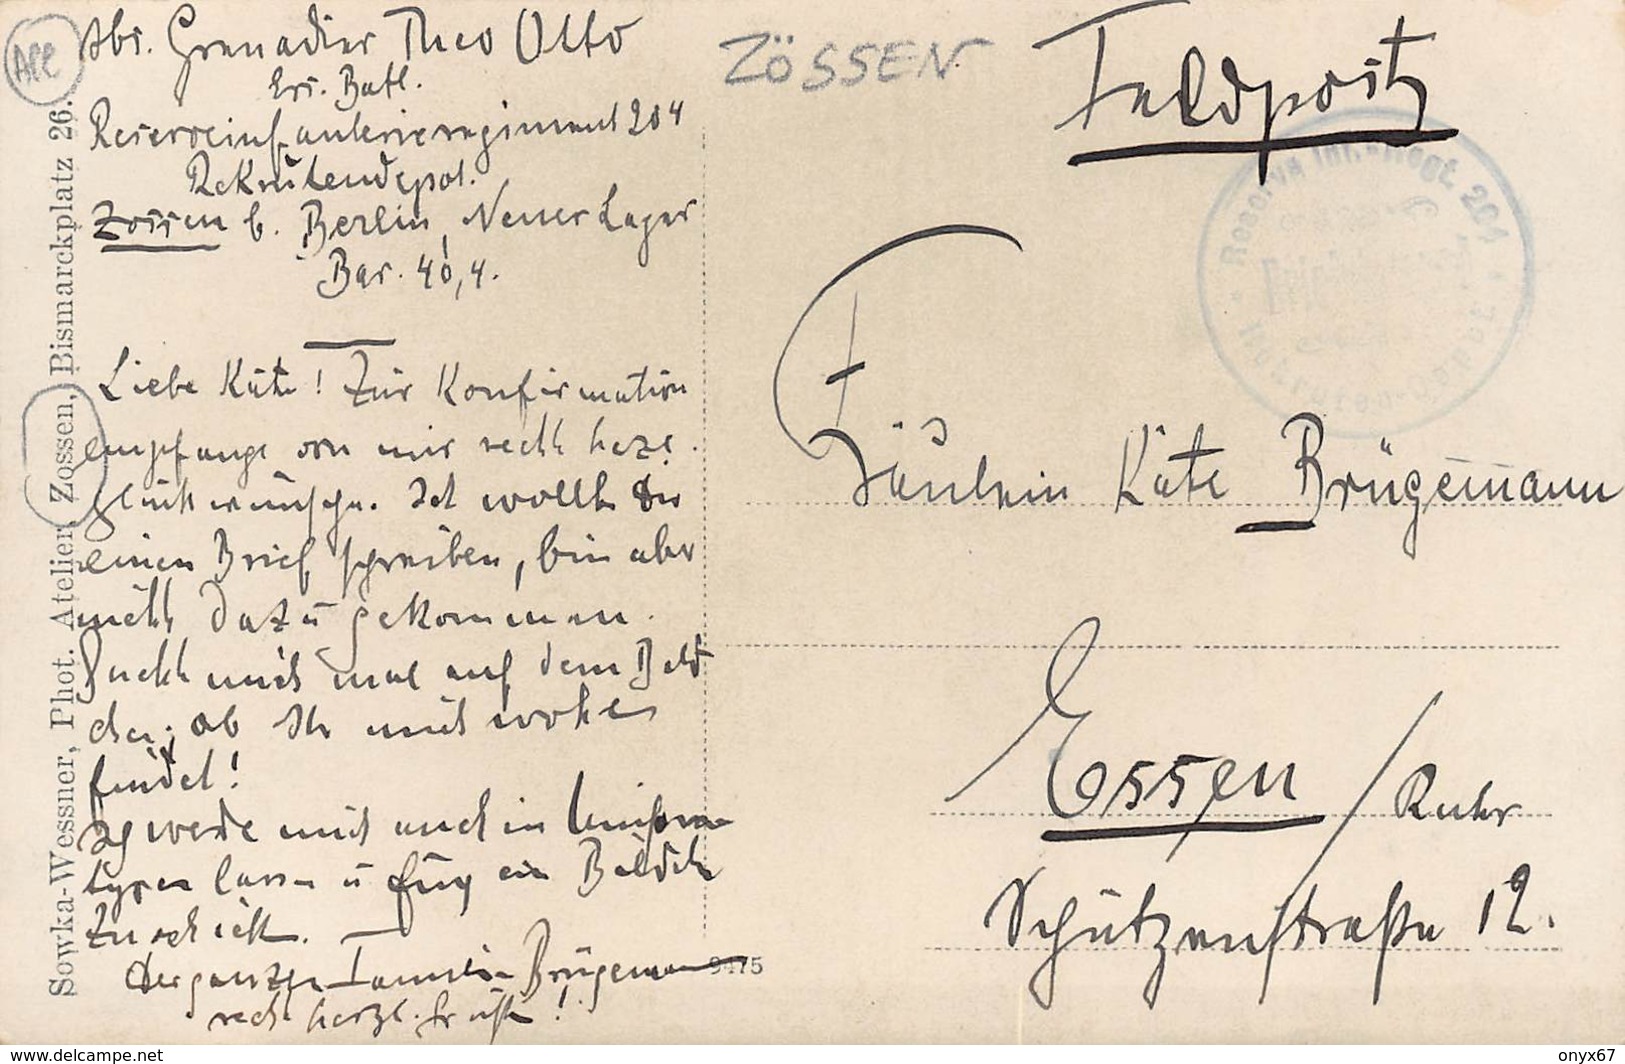 Abs. Grenadier Theo Otto
Ers. Batl.
Reserveinfanterieregiment 204
Rekrutendepot.
Zossen b. Berlin, Neues Lager
Bar. 40,4.
Liebe Käte! Zur Konfirmation
empfange von mir recht herzl.
Glückwünsche. Ich wollte Dir
einen Brief schreiben, bin aber
nicht dazu gekommen.
Guckt mich mal auf dem Bild
an, ob Ihr mich wohl
findet!
Ich werde mich auch in Uniform
lassen u Euch ein Bildch
zuschicken.
Der ganzen Familie Brügemann
recht herzl. Grüße!
Sowka-Wessner, Phot. Atelier, Zossen, Bismarckplatz 26.
All
ZÖSSEN
Feldpost
Reserve Inf.-Regt. 204
Rekruten-Depot
Fräulein Käte Brügemann
Essen / Ruhr
Schützenstraße 12.
9475
www.delcampe.net
onyx67